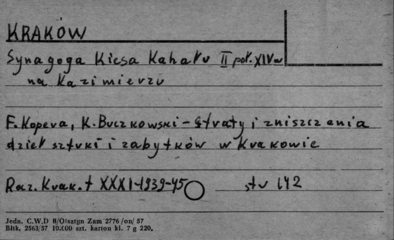 KRAKÓW
Synagoga Kiesa Kahału II poł. XIV w
na Kazimierzu
F. Kopera, K. Buczkowski - Straty i zniszczenia
dzieł sztuki i zabytków w Krakowie
Rocz. Krak. t XXXI-1939-45 str 142
Jedn. C.W.D 8/Olsztyn Zam 2776/on/57
Bltk. 2563/57 10.000 szt. karton kl. 7 g 220,